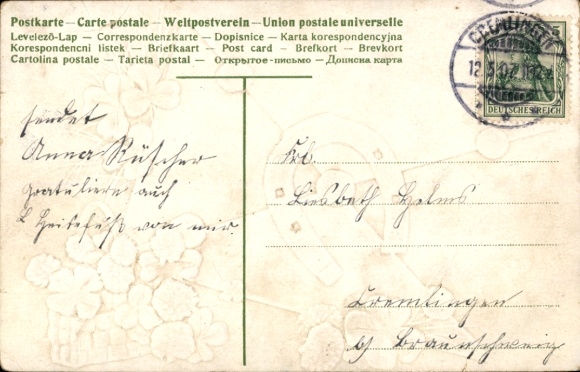 Postkarte — Carte postale — Weltpostverein — Union postale universelle
Levelező-Lap — Correspondenzkarte — Dopisnice — Karta korespondencyjna
Korespondencni listek — Briefkaart — Post card — Brefkort — Brevkort
Cartolina postale — Tarieta postal — Открытое-письмо — Дописна карта
DEUTSCHES REICH
sendet
Anna Rüscher
gratuliere auch
von mir.
Frl.
Liesbeth Helms
Cremlingen
b/ Braunschweig